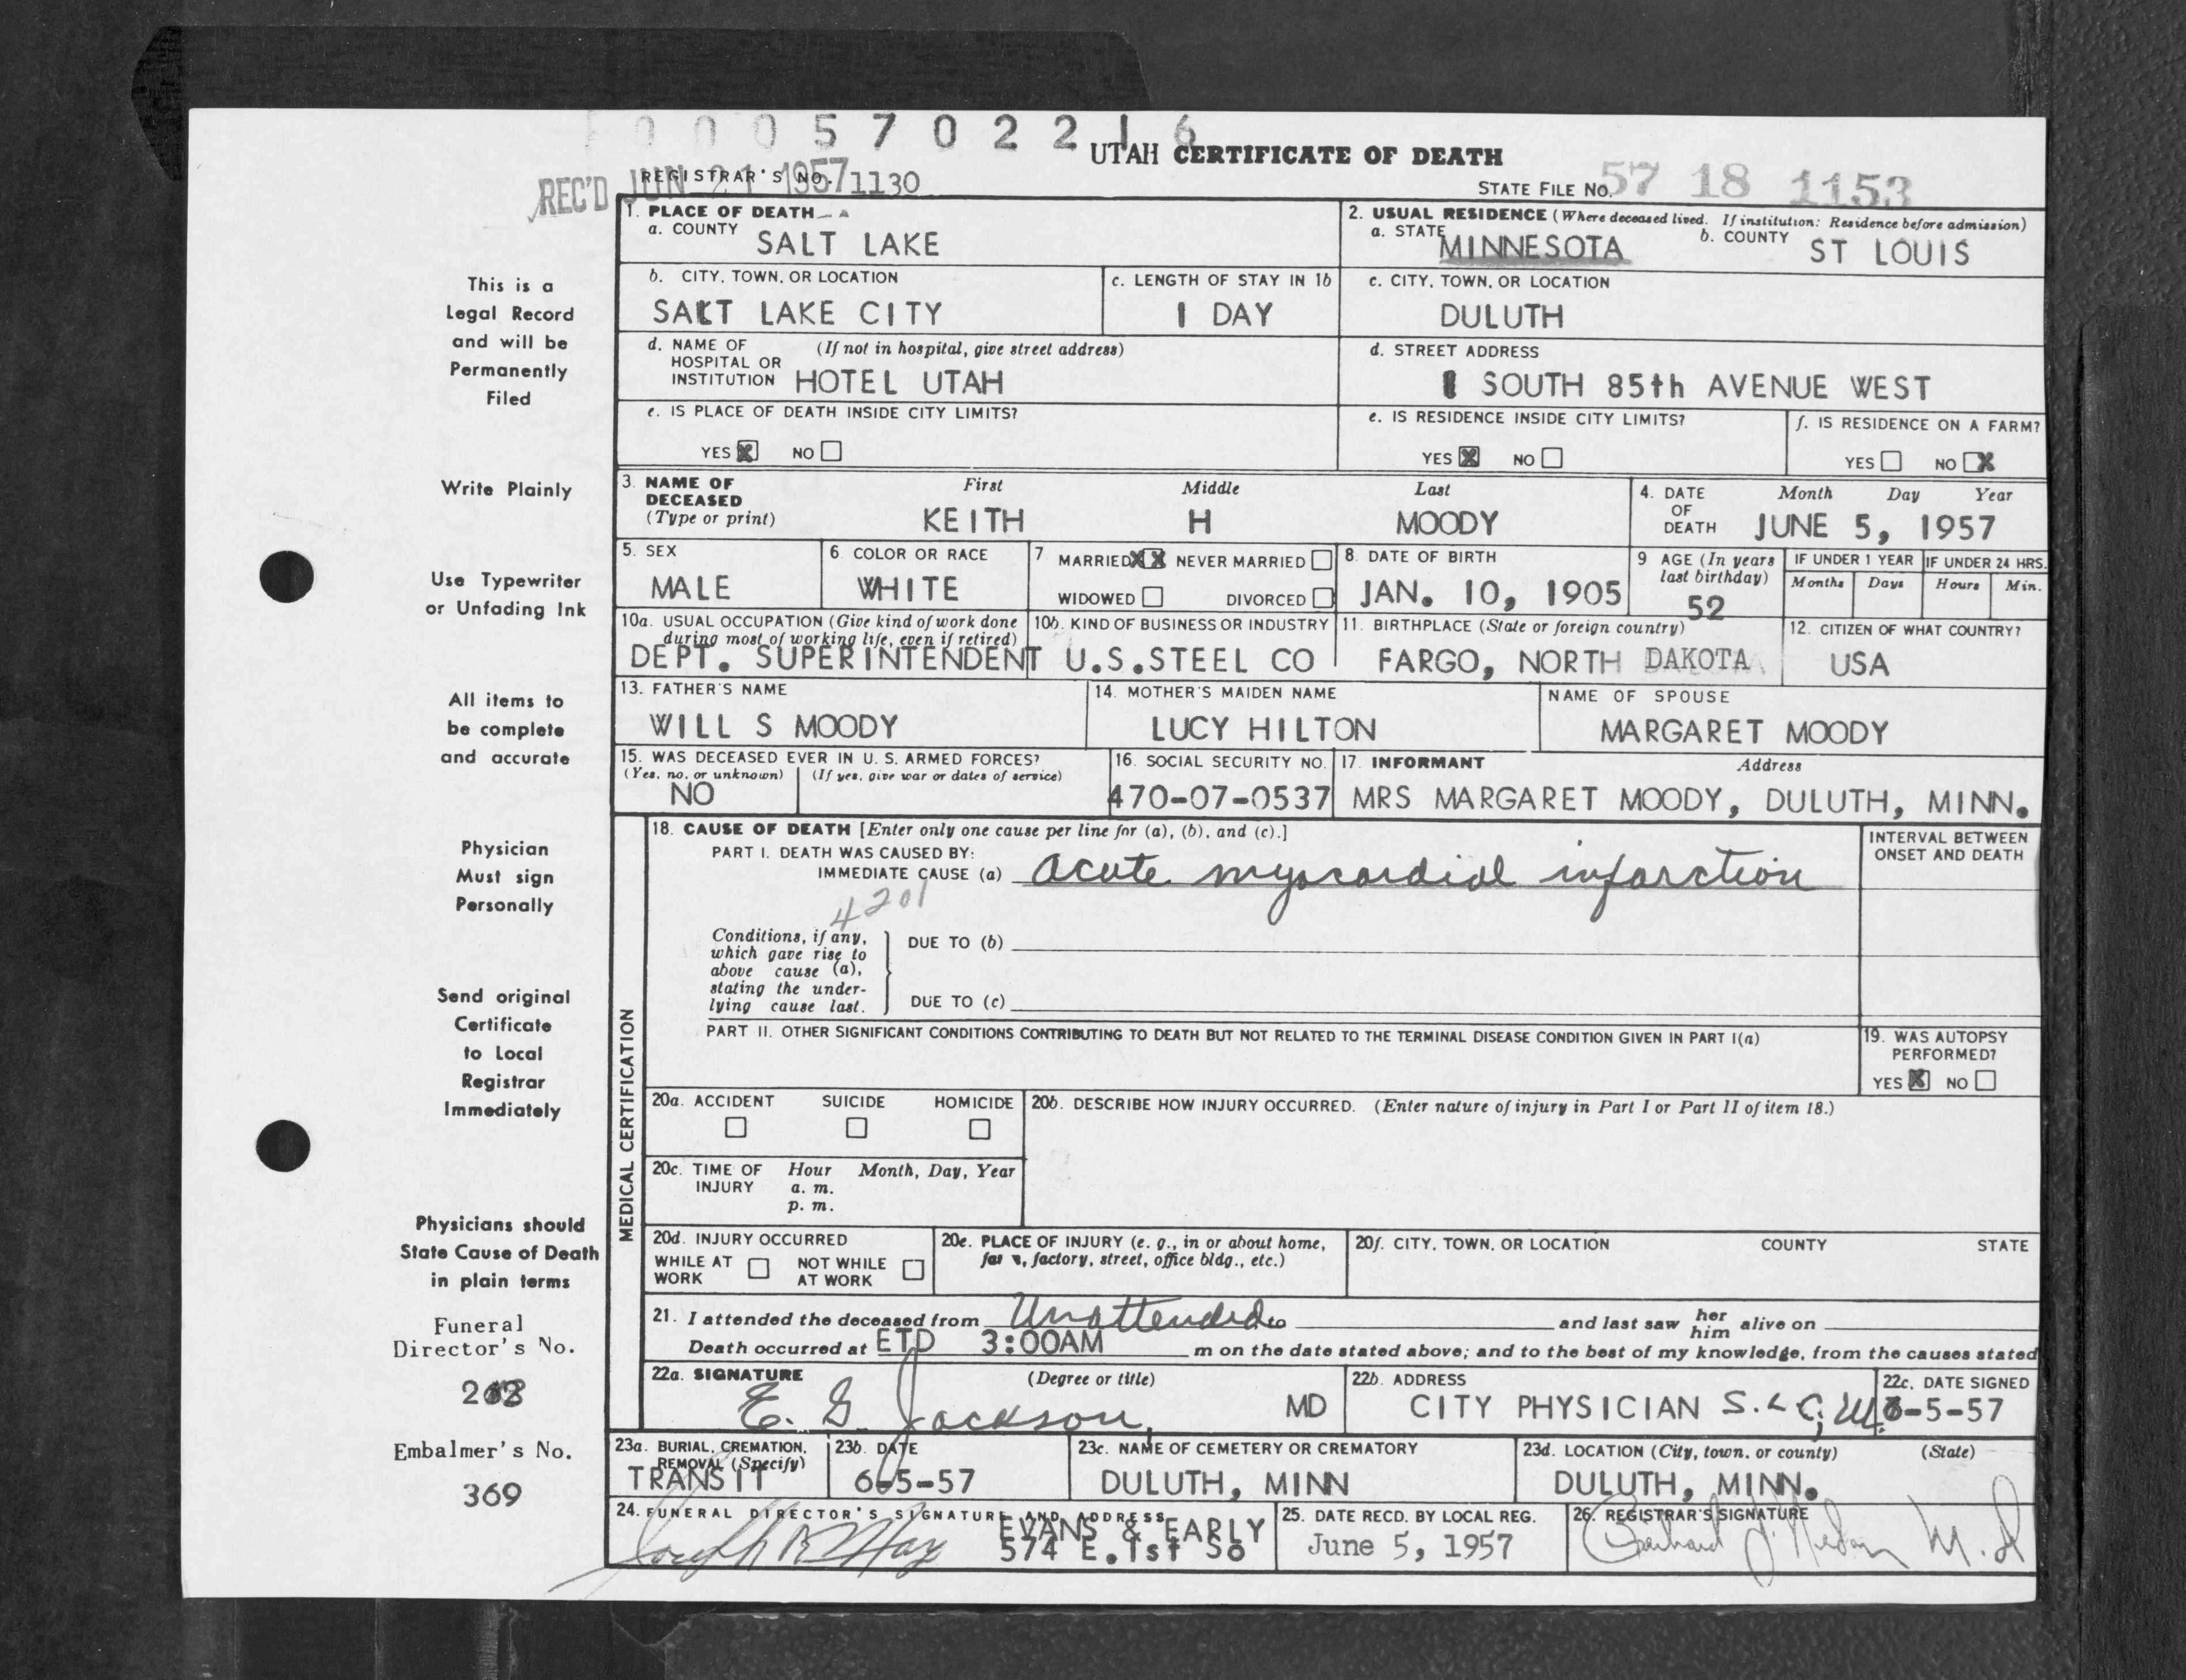 0 0 0 5 7 0 2 2 1 6
UTAH CERTIFICATE OF DEATH
REC'D JUN 21 1957
REGISTRAR'S NO. 1130
STATE FILE NO. 57 18 1153
1. PLACE OF DEATH
a. COUNTY
SALT LAKE
2. USUAL RESIDENCE (Where deceased lived. If institution: Residence before admission)
a. STATE MINNESOTA b. COUNTY ST LOUIS
b. CITY, TOWN, OR LOCATION
SALT LAKE CITY
c. LENGTH OF STAY IN 1b
1 DAY
c. CITY, TOWN, OR LOCATION
DULUTH
d. NAME OF HOSPITAL OR INSTITUTION (If not in hospital, give street address)
HOTEL UTAH
d. STREET ADDRESS
SOUTH 85th AVENUE WEST
e. IS PLACE OF DEATH INSIDE CITY LIMITS?
YES X NO
e. IS RESIDENCE INSIDE CITY LIMITS?
YES X NO
f. IS RESIDENCE ON A FARM?
YES NO X
3. NAME OF DECEASED (Type or print)
First Middle Last
KEITH H MOODY
4. DATE OF DEATH Month Day Year
JUNE 5, 1957
5. SEX
MALE
6. COLOR OR RACE
WHITE
7. MARRIED XX NEVER MARRIED
WIDOWED DIVORCED
8. DATE OF BIRTH
JAN. 10, 1905
9 AGE (In years last birthday)
52
IF UNDER 1 YEAR
Months Days
IF UNDER 24 HRS.
Hours Min.
10a. USUAL OCCUPATION (Give kind of work done during most of working life, even if retired)
DEPT. SUPERINTENDENT
10b. KIND OF BUSINESS OR INDUSTRY
U.S.STEEL CO
11. BIRTHPLACE (State or foreign country)
FARGO, NORTH DAKOTA
12. CITIZEN OF WHAT COUNTRY?
USA
13. FATHER'S NAME
WILL S MOODY
14. MOTHER'S MAIDEN NAME
LUCY HILTON
NAME OF SPOUSE
MARGARET MOODY
15. WAS DECEASED EVER IN U. S. ARMED FORCES?
(Yes, no, or unknown) (If yes, give war or dates of service)
NO
16. SOCIAL SECURITY NO.
470-07-0537
17. INFORMANT Address
MRS MARGARET MOODY, DULUTH, MINN.
MEDICAL CERTIFICATION
18. CAUSE OF DEATH [Enter only one cause per line for (a), (b), and (c).]
PART I. DEATH WAS CAUSED BY:
IMMEDIATE CAUSE (a) acute myocardial infarction
4201
INTERVAL BETWEEN ONSET AND DEATH
Conditions, if any, which gave rise to above cause (a), stating the underlying cause last.
DUE TO (b)
DUE TO (c)
PART II. OTHER SIGNIFICANT CONDITIONS CONTRIBUTING TO DEATH BUT NOT RELATED TO THE TERMINAL DISEASE CONDITION GIVEN IN PART I(a)
19. WAS AUTOPSY PERFORMED?
YES X NO
20a. ACCIDENT SUICIDE HOMICIDE
20b. DESCRIBE HOW INJURY OCCURRED. (Enter nature of injury in Part I or Part II of item 18.)
20c. TIME OF INJURY Hour Month, Day, Year
a. m.
p. m.
20d. INJURY OCCURRED
WHILE AT WORK NOT WHILE AT WORK
20e. PLACE OF INJURY (e. g., in or about home, farm, factory, street, office bldg., etc.)
20f. CITY, TOWN, OR LOCATION COUNTY STATE
21. I attended the deceased from Unattended to and last saw her him alive on
Death occurred at ETD 3:00AM m on the date stated above; and to the best of my knowledge, from the causes stated
22a. SIGNATURE (Degree or title)
E. G Jackson, MD
22b. ADDRESS
CITY PHYSICIAN S.L C, Ut.
22c. DATE SIGNED
6-5-57
23a. BURIAL, CREMATION, REMOVAL (Specify)
TRANSIT
23b. DATE
6-5-57
23c. NAME OF CEMETERY OR CREMATORY
DULUTH, MINN
23d. LOCATION (City, town, or county) (State)
DULUTH, MINN.
24. FUNERAL DIRECTOR'S SIGNATURE AND ADDRESS
EVANS & EARLY
574 E.1st So
25. DATE RECD. BY LOCAL REG.
June 5, 1957
26. REGISTRAR'S SIGNATURE
M.D
This is a
Legal Record
and will be
Permanently
Filed
Write Plainly
Use Typewriter
or Unfading Ink
All items to
be complete
and accurate
Physician
Must sign
Personally
Send original
Certificate
to Local
Registrar
Immediately
Physicians should
State Cause of Death
in plain terms
Funeral
Director's No.
Embalmer's No.
369